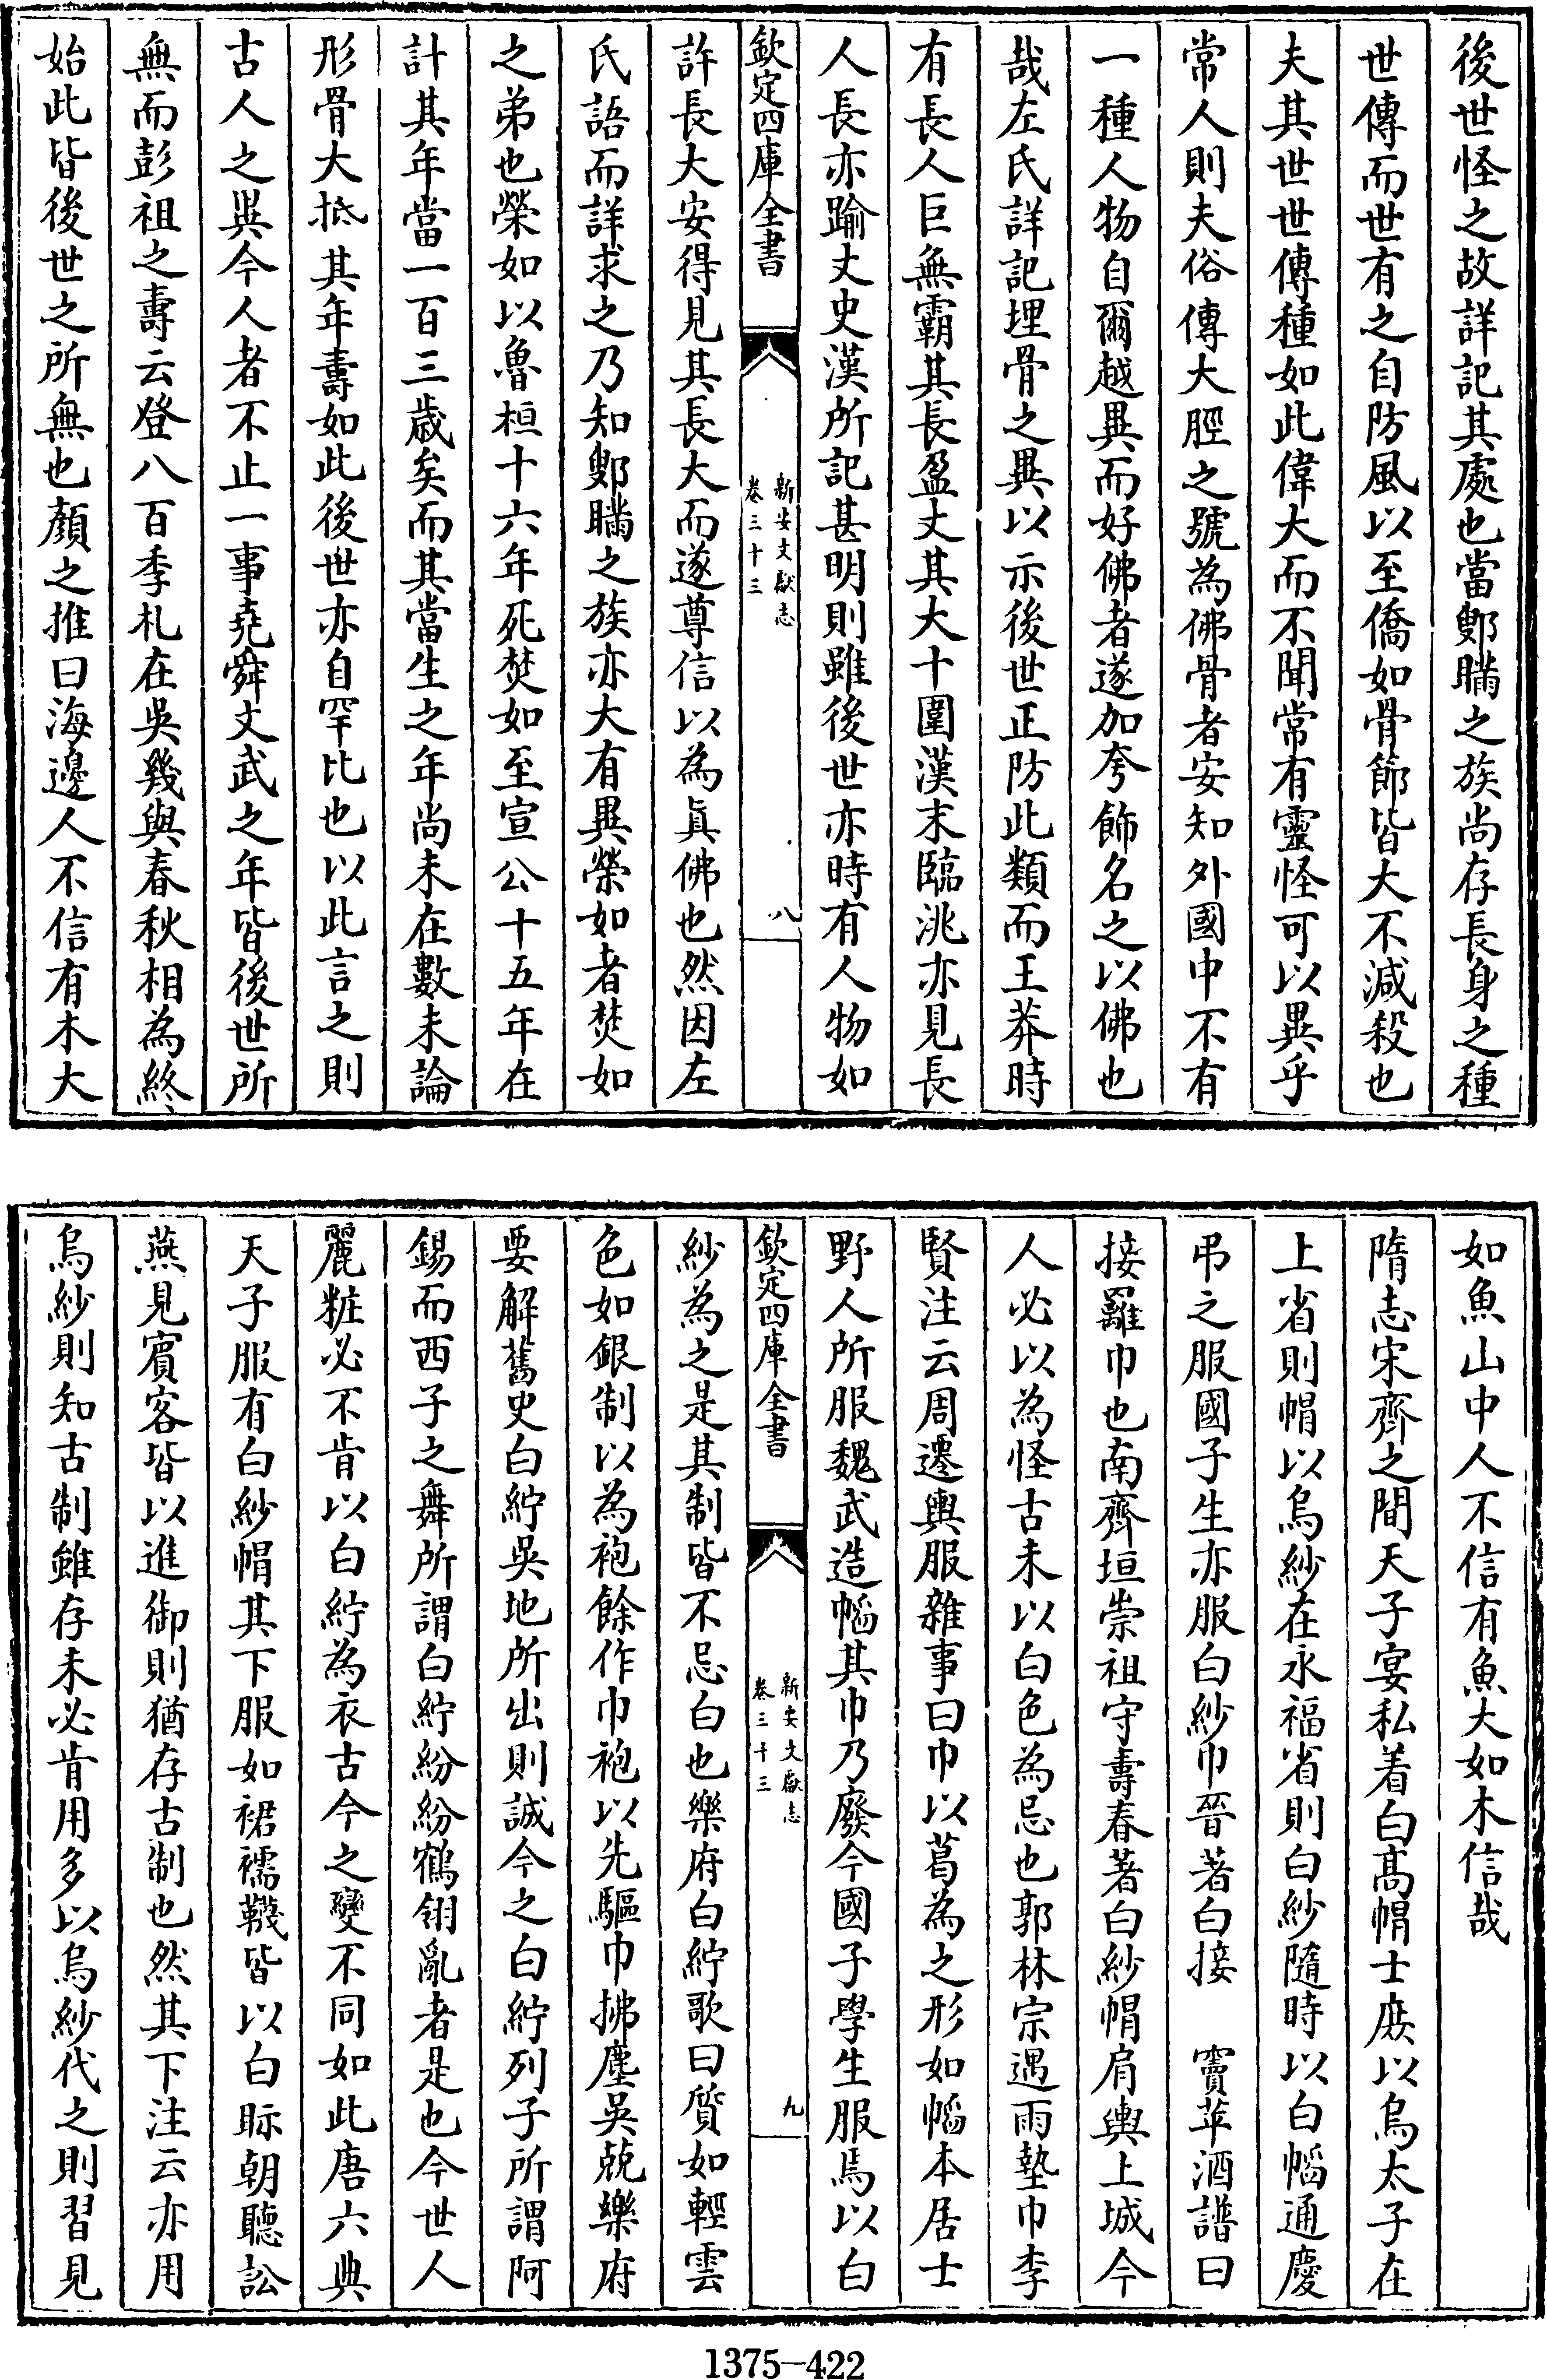 後世怪之故詳記其處也當鄋瞞之族尚存長身之種
世傳而世有之自防風以至僑如骨節皆大不減殺也
夫其世世傳種如此偉大而不聞常有靈怪可以異乎
常人則夫俗傳大脛之號為佛骨者安知外國中不有
一種人物自爾越異而好佛者遂加夸飾名之以佛也
哉左氏詳記埋骨之異以示後世正防此類而王莽時
有長人巨無霸其長盈丈其大十圍漢末臨洮亦見長
人長亦踰丈史漢所記甚明則雖後世亦時有人物如
欽定四庫全書
新安文獻志
卷三十三
八
許長大安得見其長大而遂尊信以為真佛也然因左
氏語而詳求之乃知鄋瞞之族亦大有異榮如者焚如
之弟也榮如以魯桓十六年死焚如至宣公十五年在
計其年當一百三歲矣而其當生之年尚未在數未論
形骨大抵其年壽如此後世亦自罕比也以此言之則
古人之異今人者不止一事堯舜文武之年皆後世所
無而彭祖之壽云登八百季札在吳幾與春秋相為終
始此皆後世之所無也顏之推曰海邊人不信有木大
如魚山中人不信有魚大如木信哉
隋志宋齊之間天子宴私着白高帽士庶以烏太子在
上省則帽以烏紗在永福省則白紗隨時以白幍通慶
弔之服國子生亦服白紗巾晉著白接 竇苹酒譜曰
接䍦巾也南齊垣崇祖守壽春著白紗帽肩輿上城今
人必以為怪古未以白色為忌也郭林宗遇雨墊巾李
賢注云周遷輿服雜事曰巾以葛為之形如幍本居士
野人所服魏武造幍其巾乃廢今國子學生服焉以白
欽定四庫全書
新安文獻志
卷三十三
九
紗為之是其制皆不忌白也樂府白紵歌曰質如輕雲
色如銀制以為袍餘作巾袍以先驅巾拂塵吳兢樂府
要解舊史白紵吳地所出則誠今之白紵列子所謂阿
錫而西子之舞所謂白紵紛紛鶴翎亂者是也今世人
麗粧必不肯以白紵為衣古今之變不同如此唐六典
天子服有白紗帽其下服如裙襦韈皆以白眎朝聽訟
燕見賓客皆以進御則猶存古制也然其下注云亦用
烏紗則知古制雖存未必肯用多以烏紗代之則習見
1375-422